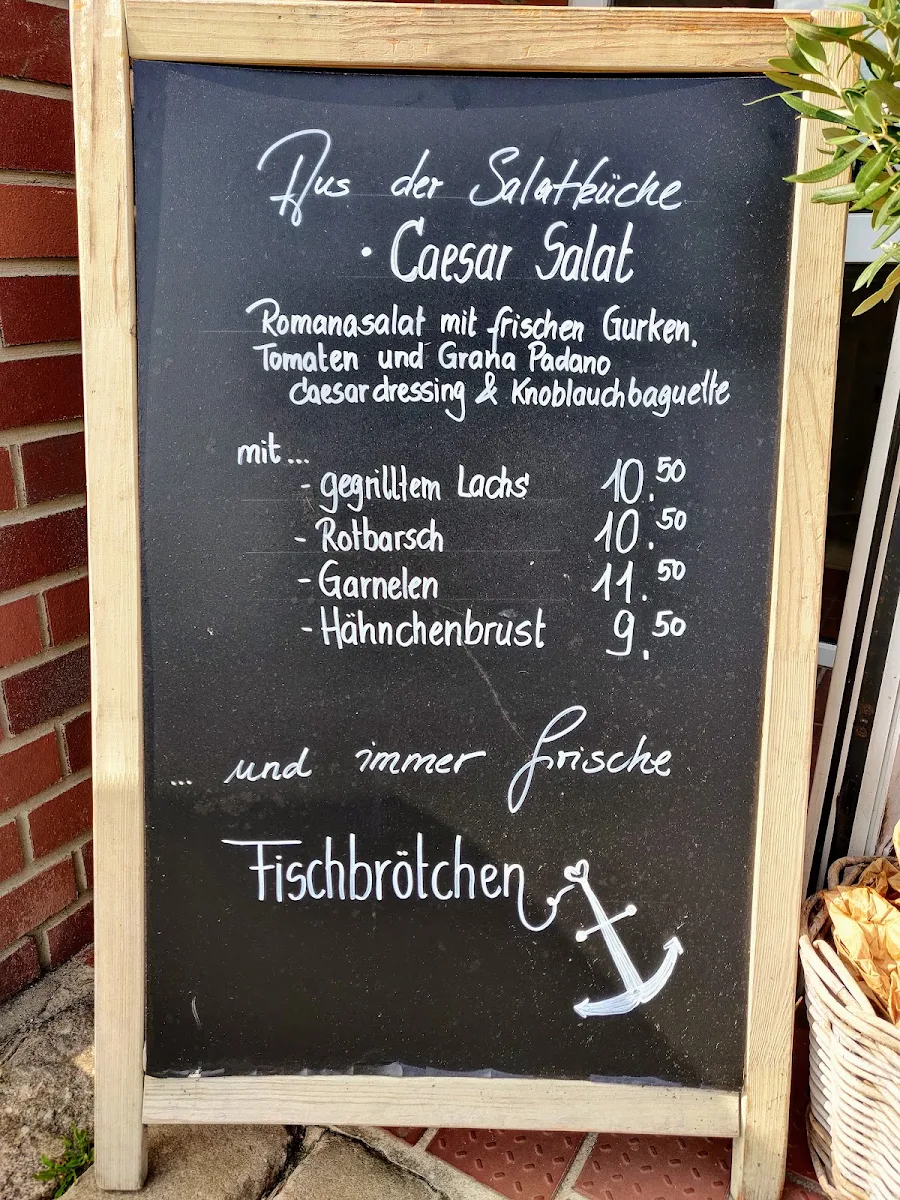 Aus der Salatküche
• Caesar Salat
Romanasalat mit frischen Gurken,
Tomaten und Grana Padano
Caesardressing & Knoblauchbaguette
mit...
- gegrilltem Lachs 10.50
- Rotbarsch 10.50
- Garnelen 11.50
- Hähnchenbrust 9.50
... und immer frische
Fischbrötchen